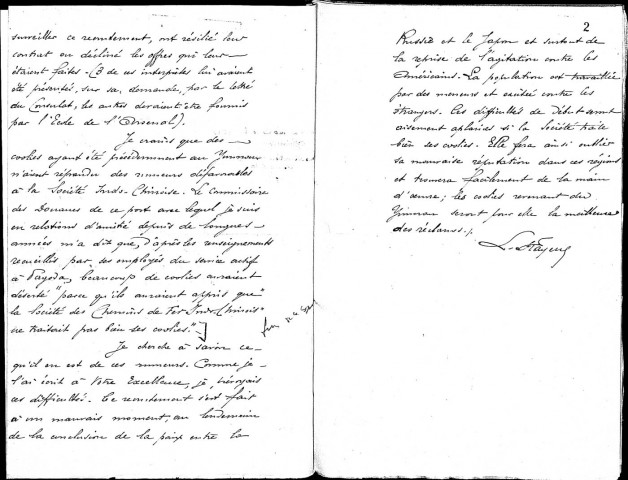 surveiller ce recrutement, ont résilié leur
contrat en décliné les offres qui leur
étaient faites - (3 de ces interprètes lui avaient
été présentés, sur sa demande, par le lettré
du Consulat, les autres devaient être fournis
par l'Ecole de l'Arsenal).
Je crains que des
coolies ayant été précédemment au Yunnan
n'aient répandu des rumeurs défavorables
à la Société Indo-Chinoise. Le Commissaire
des Douanes de ce port avec lequel je suis
en relations d'amitié depuis de longues
années m'a dit que, d'après les renseignements
recueillis par ses employés du service actif
à Pagoda, beaucoup de coolies auraient
déserté "parce qu'ils auraient appris que"
"la Société des Chemins de Fer Indo-Chinois"
"ne traitait pas bien ses coolies."
Je cherche à savoir ce
qu'il en est de ces rumeurs. Comme je
l'ai écrit à Votre Excellence, je prévoyais
ces difficultés. Le recrutement s'est fait
à un mauvais moment, au lendemain
de la conclusion de la paix entre la
2
Russie et le Japon et surtout de
la reprise de l'agitation contre les
Américains. La population est travaillée
par des meneurs et excitée contre les
étrangers. Ces difficultés de début seront
aisément aplanies si la Société traite
bien ses coolies. Elle fera ainsi oublier
sa mauvaise réputation dans ces régions
et trouvera facilement de la main
d'œuvre; les coolies revenant du
Yunnan seront pour elle la meilleure
des réclames./.